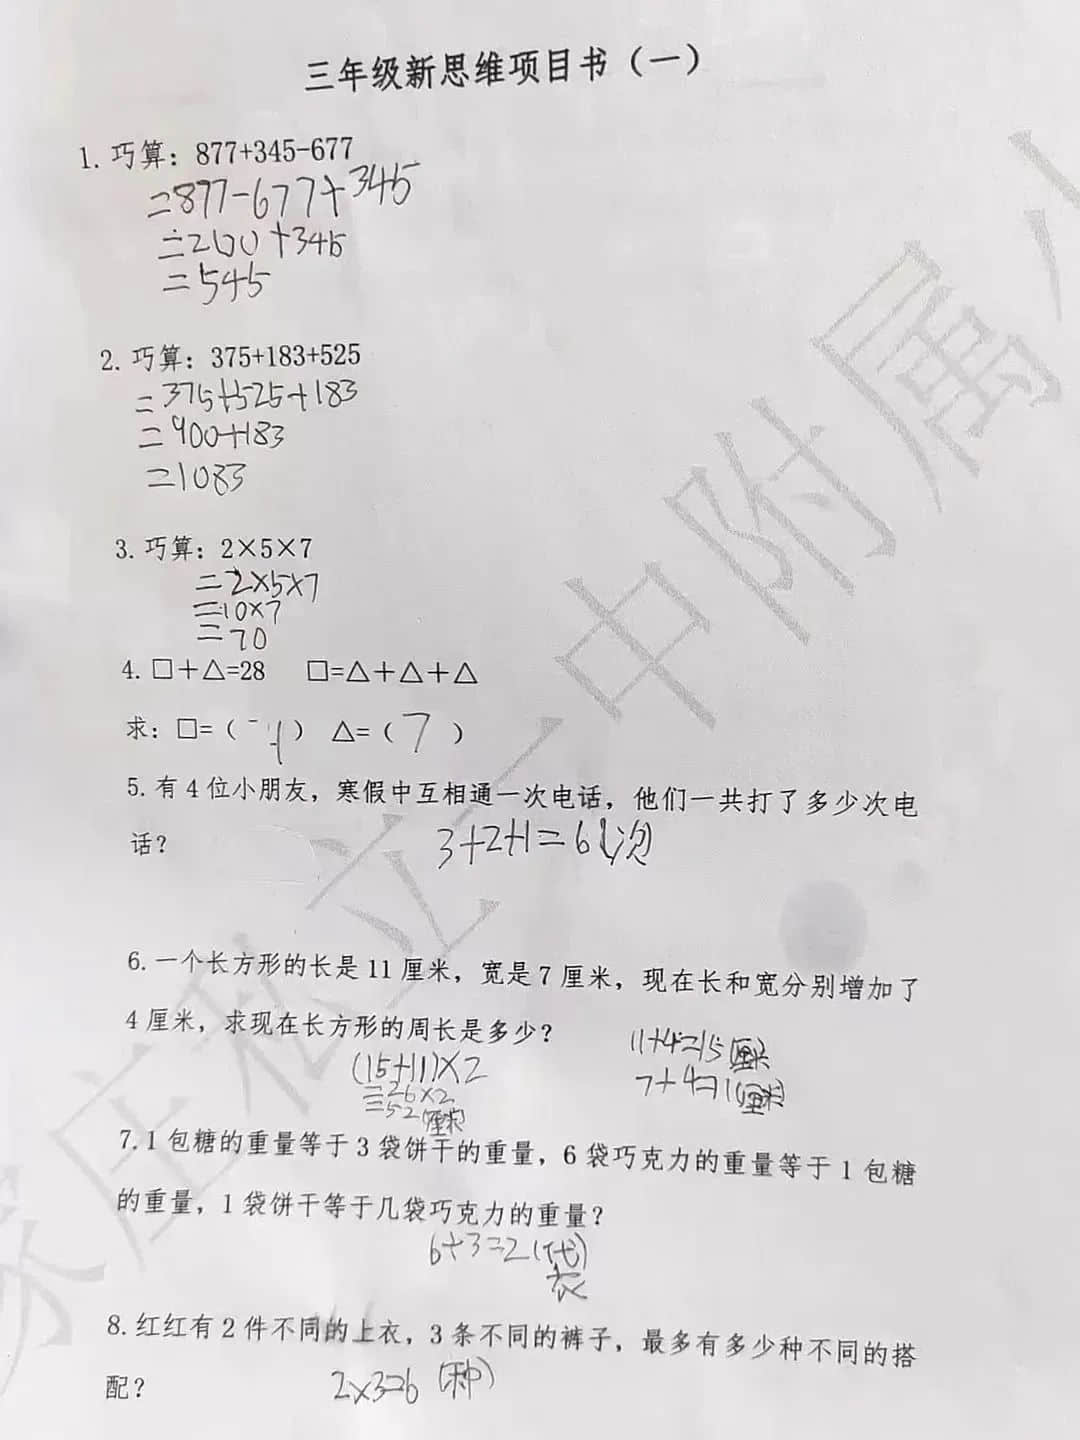 三年级新思维项目书（一）
1. 巧算：877+345-677
=877-677+345
=200+345
=545
2. 巧算：375+183+525
=375+525+183
=900+183
=1083
3. 巧算：2×5×7
=2×5×7
=10×7
=70
4. □＋△=28 □=△＋△＋△
求：□=（ ） △=（ 7 ）
5. 有 4 位小朋友，寒假中互相通一次电话，他们一共打了多少次电
话？ 3+2+1=6(次)
6. 一个长方形的长是 11 厘米，宽是 7 厘米，现在长和宽分别增加了
4 厘米，求现在长方形的周长是多少？ 11+4=15(厘米)
(15+11)×2 7+4=11(厘米)
=26×2
=52(厘米)
7.1 包糖的重量等于 3 袋饼干的重量，6 袋巧克力的重量等于 1 包糖
的重量，1 袋饼干等于几袋巧克力的重量？
6÷3=2(袋)
8. 红红有 2 件不同的上衣，3 条不同的裤子，最多有多少种不同的搭
配？ 2×3=6(种)
家庄私立一中附属小